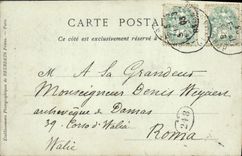 CARTE POSTALE
Ce côté est exclusivement réservé à
Etablissements Photographiques de NEURDEIN Frères. — Paris.
A Sa Grandeur
Monseigneur Denis
archevêque de Damas
39 Corso d'Italie
Roma
Italie
248